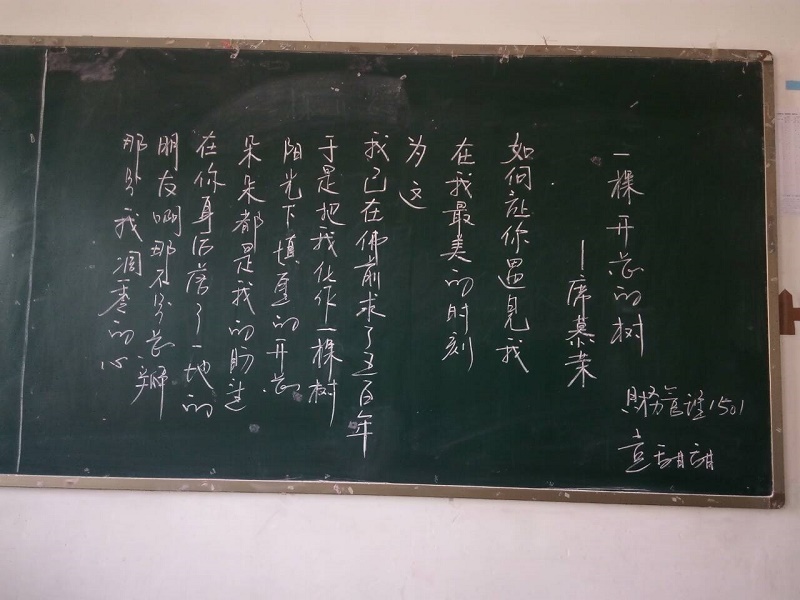 一棵开花的树
—席慕蓉
如何让你遇见我
在我最美的时刻
为这
我已在佛前求了五百年
于是把我化作一棵树
阳光下慎重的开花
朵朵都是我的盼望
在你身后落了一地的
朋友啊那不是花瓣
那是我凋零的心
财务管理1501
甜甜